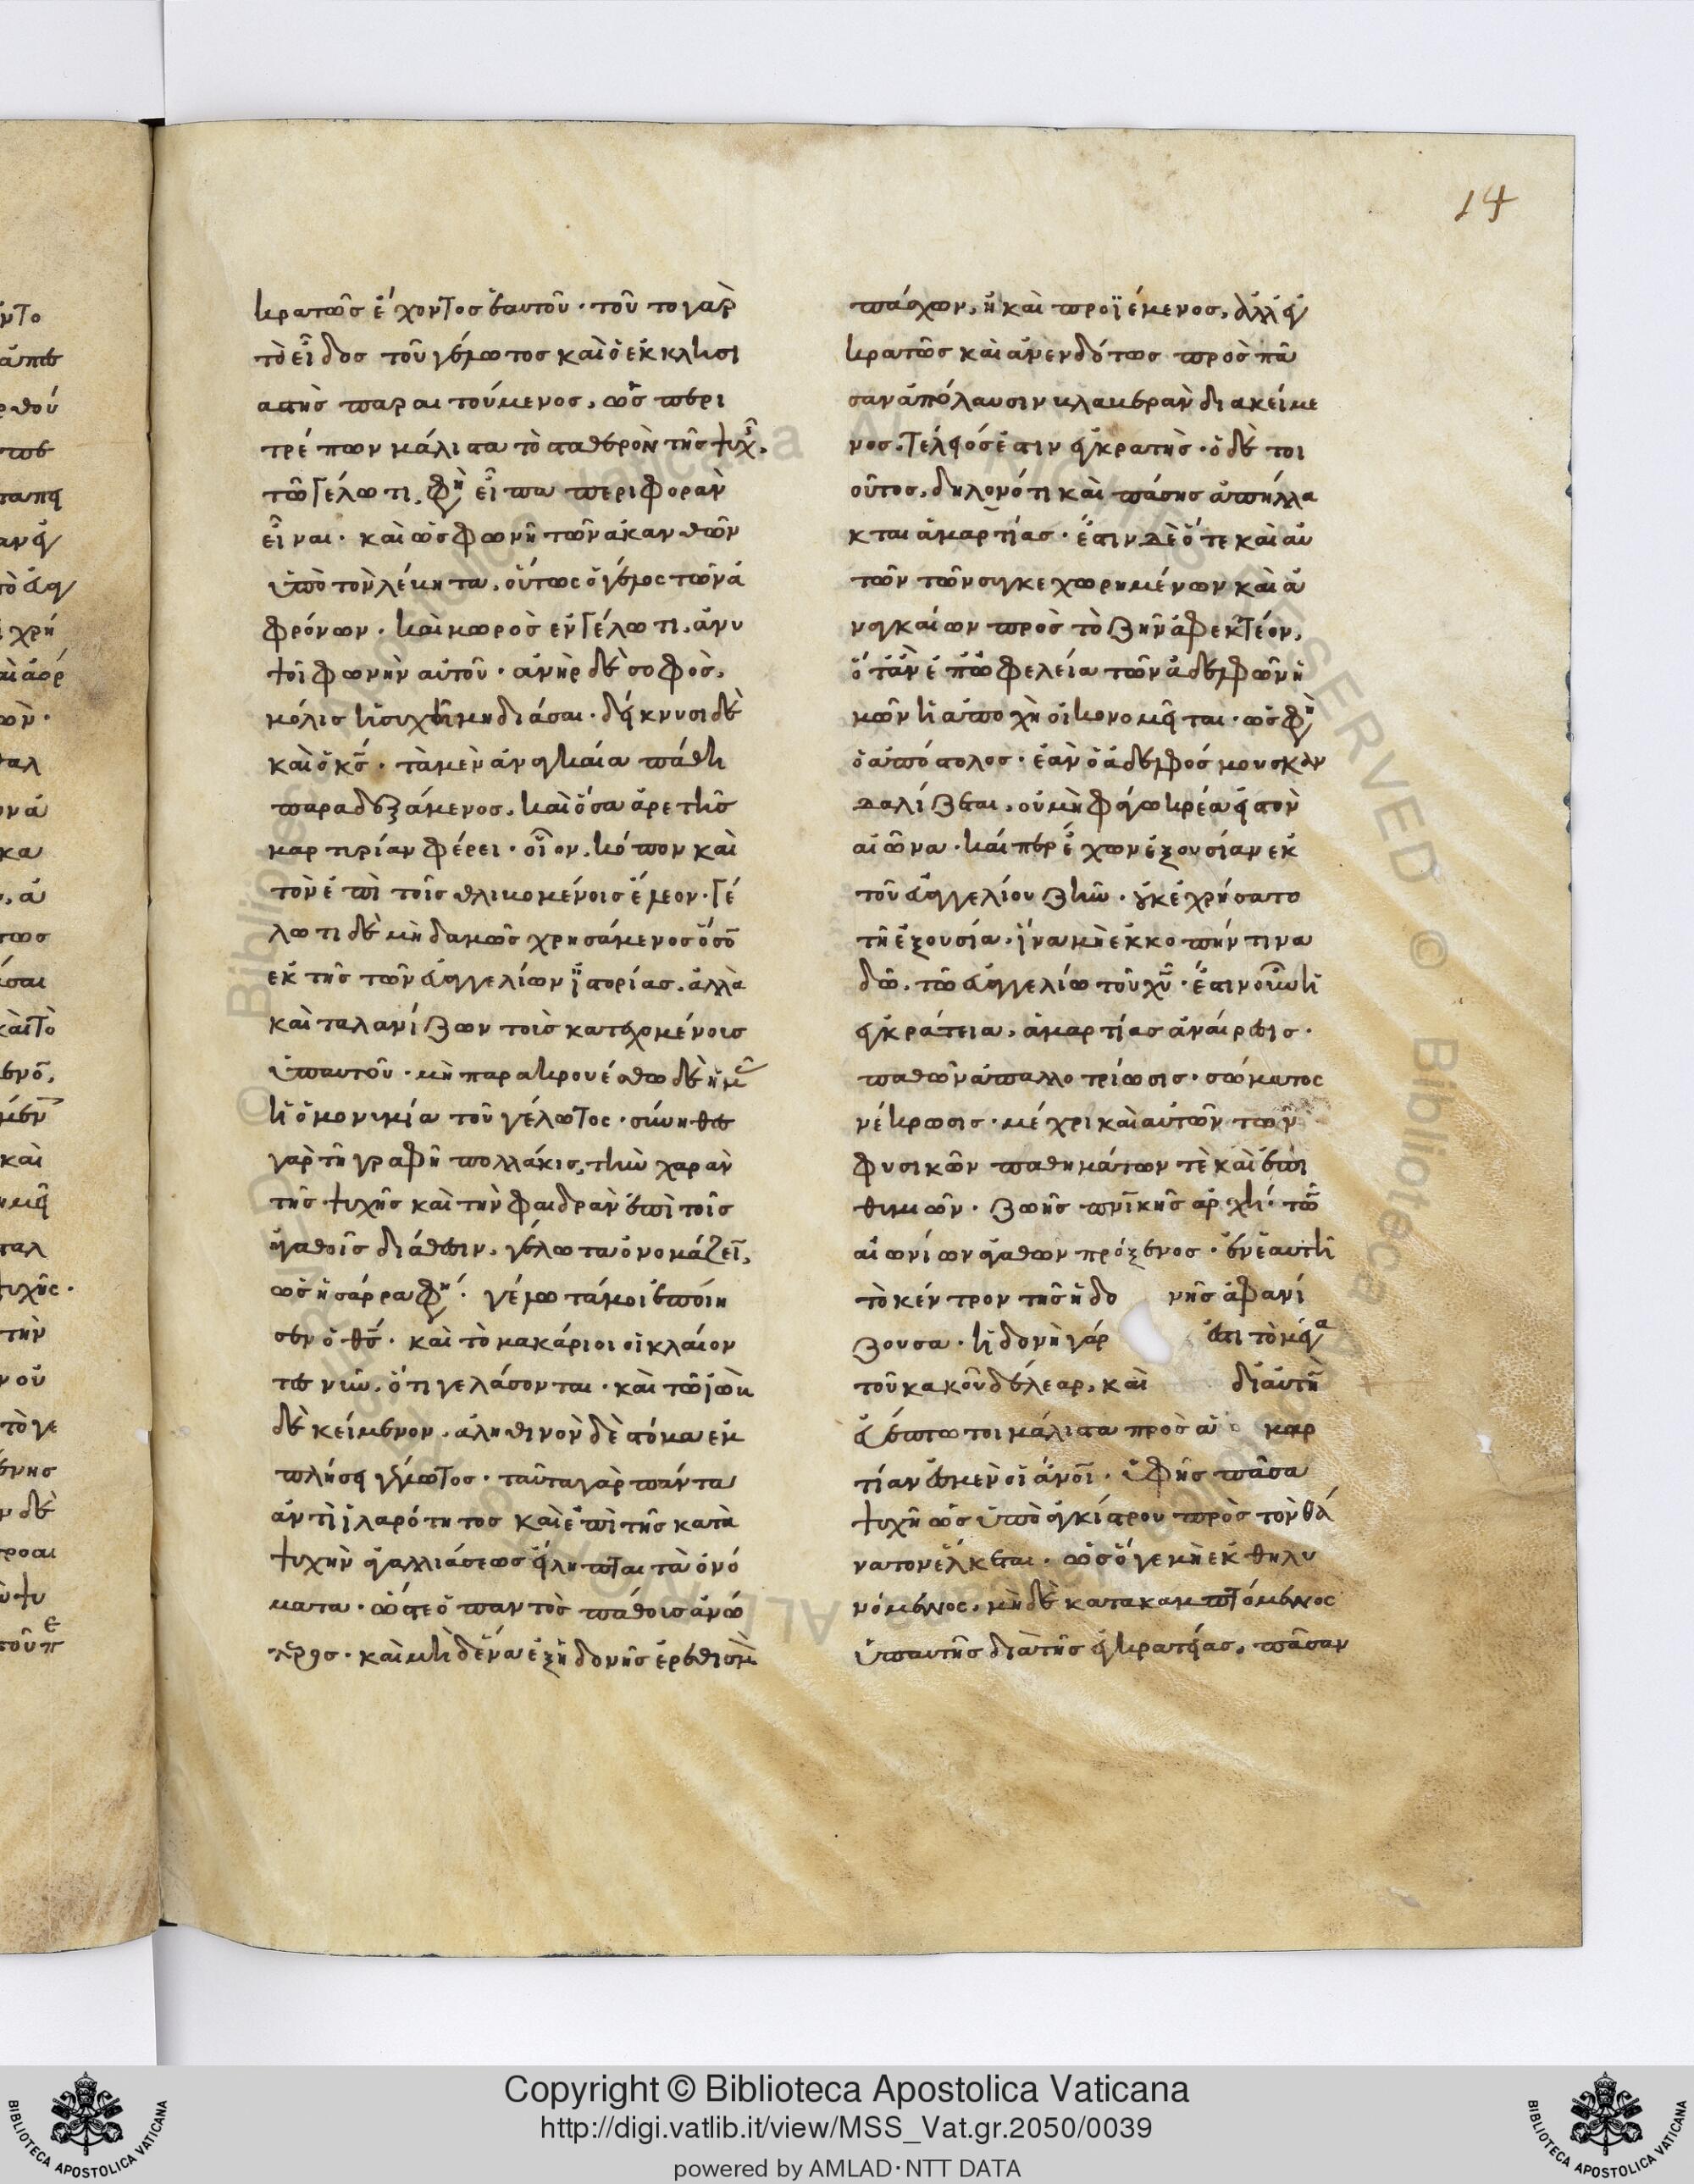 14
κρατῶς ἔχοντος ἑαυτοῦ· τοῦτο γὰρ
τὸ εἶδος τοῦ γέλωτος καὶ ὁ ἐκκλησι
αστὴς παραιτούμενος, ὡς περι
τρέπων μάλιστα τὸ σταθερὸν τῆς ψυχ῀.
τῶ γέλωτι, φη εἶπα περιφορὰν
εἶναι· καὶ ὡς φωνὴ τῶν ἀκανθῶν
ὑπὸ τὸν λέβητα, οὕτως ὁ γέλως τῶν ἀ
φρόνων· καὶ μωρὸς ἐν γέλωτι, ἀνυ
ψοῖ φωνὴν αὐτοῦ· ἀνὴρ δὲ σοφὸς,
μόλις ἡσυχῆ μηδιάσαι· δείκνυσι δὲ
καὶ ὁ κς· τὰ μὲν ἀναγκαία πάθη
παραδεξάμενος, καὶ ὅσα ἀρετῆς
μαρτυρίαν φέρει· οἷον, κόπον καὶ
τὸν ἐπὶ τοῖς θλιβομένοις ἔλεον· γέ
λωτι δὲ μὴδαμῶς χρησάμενος ὅσο
ἐκ τῆς τῶν εὐαγγελίων ἱστορίας, ἀλλὰ
καὶ ταλανίζων τοῖς κατεχομένοις
ὑπαυτοῦ· μὴ παρακρουέσθω δὲ ἡμ
ἡ ὁμονυμία τοῦ γέλωτος· σύνηθες
γὰρ τῆ γραφῆ πολλάκις, τὴν χαρὰν
τῆς ψυχῆς καὶ τὴν φαιδρὰν ἐπὶ τοῖς
ἀγαθοῖς διάθεσιν, γέλωτα ὀνομάζει,
ὡς ἡ σάρρα φη· γέλωτά μοι ἐποίη
σεν ὁ θς· καὶ τὸ μακάριοι οἱ κλαίον
τες νῦν, ὅτι γελάσονται· καὶ τῶ ἰὼβ
δὲ κείμενον, ἀληθινὸν δὲ στόμα ἐμ
πλήσει γέλωτος· ταῦτα γὰρ πάντα
ἀντὶ ἱλαρότητος καὶ ἐπὶ τῆς κατὰ
ψυχὴν ἀγαλλιάσεως εἴληπται τὰ ὀνό
ματα· ὥστε ὁ παντὸς πάθοις ἀνώ
τερος· καὶ μὴδένα ἐξ ἡδονῆς ἐρεθισμ
πάσχων, ἢ καὶ προϊέμενος, ἀλλ ἐγ
κρατῶς καὶ ἀνενδότως πρὸς πᾶ
σαν ἀπόλαυσιν βλαβερὰν διακείμε
νος, τέλειός ἐστιν ἐγκρατὴς· ὁ δὲ τοι
οῦτος, δηλονότι καὶ πάσης ἀπήλλα
κται ἁμαρτίας· ἔστιν δὲ ὅτε καὶ αυ
τῶν τῶν συγκεχωρημένων καὶ ἀ
ναγκαίων πρὸς τὸ ζῆν ἀφεκτέον,
ὅτἂν ἐπ ὠφελεία τῶν ἀδελφῶν ἡ
μῶν ἡ ἀποχὴ οἰκονομεῖται· ὡς φη
ὁ ἀπόστολος· ἐὰν ὁ ἀδελφός μου σκαν
δαλίζεται, οὐ μὴ φάγω κρέα εἰς τὸν
αἰῶνα· καίπερ ἔχων ἐξουσίαν ἐκ
τοῦ εὐαγγελίου ζῆν· οὐκ ἐχρήσατο
τῆ ἐξουσία· ἵνα μὴ ἐκκοπήν τινα
δῶ, τῶ εὐαγγελίω τοῦ χυ· ἔστιν οὖν ἡ
ἐγκράτεια, ἁμαρτίας ἀναίρεσις·
παθῶν ἀπαλλοτρίωσις· σώματος
νέκρωσις· μέχρι καὶ αὐτῶν τῶν
φυσικῶν παθημάτων τὲ καὶ ἐπι
θυμιῶν· ζωῆς πνικῆς ἀρχή· τῶν
αἰωνίων ἀγαθῶν πρόξενος· ἐν ἑαυτῆ
τὸ κέντρον τῆς ἡδονῆς ἀφανί
ζουσα· ἡδονὴ γάρ ἐστι τὸ μέγα
τοῦ κακοῦ δέλεαρ, καὶ δι αὐτὴν
εὐέμπτωτοι μάλιστα πρὸς αμαρ
τίαν ἐσμὲν οἱ ἄνοι· ὑφ ἧς πᾶσα
ψυχὴ ὡς ὑπὸ ἀγκίστρου πρὸς τὸν θά
νατον ἕλκεται· ὡς ὅγε μὴ ἐκθηλυ
νόμενος, μὴδὲ κατακαμπτόμενος
ὑπαυτῆς διὰ τῆς ἐγκρατείας, πᾶσαν
© Biblioteca Apostolica Vaticana ALL RIGHTS RESERVED
Copyright © Biblioteca Apostolica Vaticana
http://digi.vatlib.it/view/MSS_Vat.gr.2050/0039
powered by AMLAD·NTT DATA
BIBLIOTECA APOSTOLICA VATICANA
BIBLIOTECA APOSTOLICA VATICANA